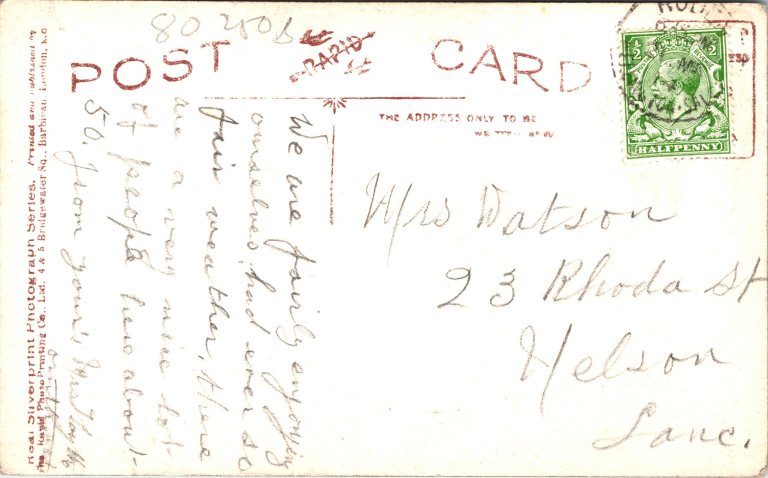 80 250B
POST CARD
RAPID
THE ADDRESS ONLY TO BE
HALFPENNY
We are fairly enjoying
ourselves, had ever so
fair weather, there
are a very nice lot
of people here about
50. from yours
Mrs Watson
23 Rhoda St
Nelson
Lanc.
Real Silverprint Photograph Series. Printed and published by
The Rapid Photo Printing Co., Ltd. 4 & 5 Bridgewater Sq., Barbican, London, E.C